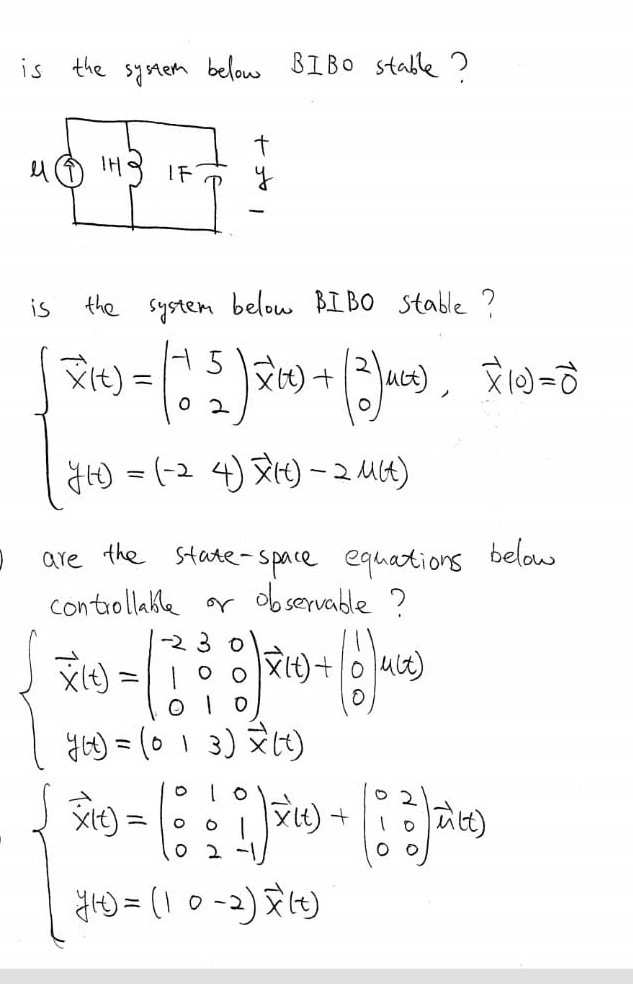 is the system below BIBO stable ?
u 1H 1F + y −
is the system below BIBO stable ?
ẋ⃗(t) = (-1 5; 0 2) x⃗(t) + (2; 0) u(t), x⃗(0) = 0⃗
y(t) = (-2 4) x⃗(t) - 2 u(t)
) are the state-space equations below
controllable or observable ?
ẋ⃗(t) = (-2 3 0; 1 0 0; 0 1 0) x⃗(t) + (1; 0; 0) u(t)
y(t) = (0 1 3) x⃗(t)
ẋ⃗(t) = (0 1 0; 0 0 1; 0 2 -1) x⃗(t) + (0 2; 1 0; 0 0) u⃗(t)
y(t) = (1 0 -2) x⃗(t)